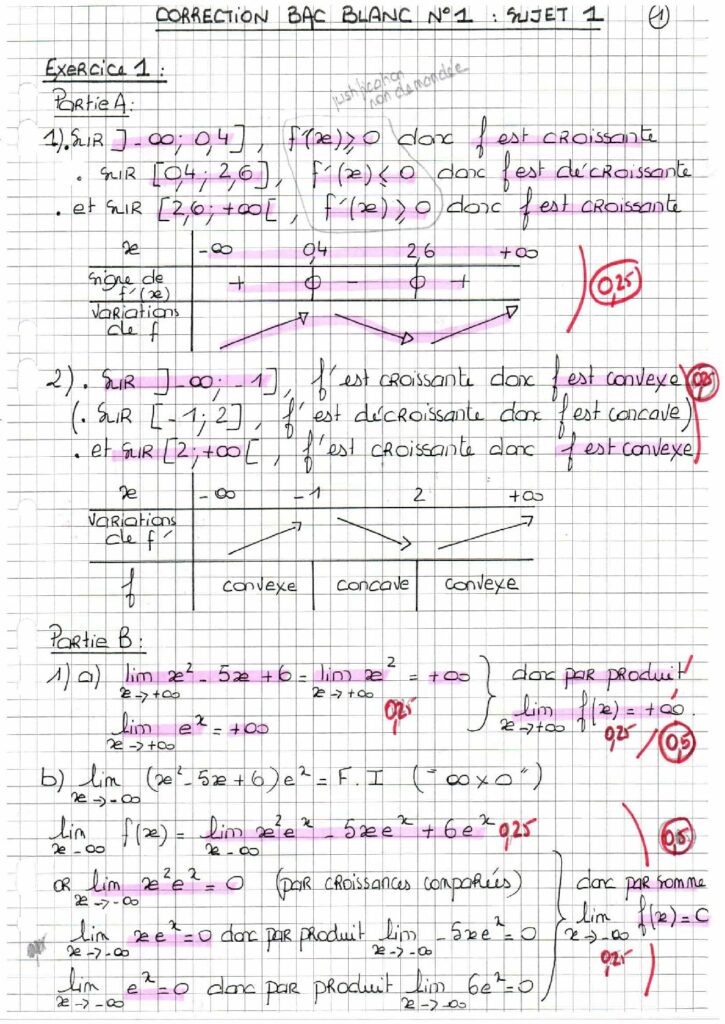 CORRECTION BAC BLANC N°1 : SUJET 1 (1)
Exercice 1 :
justification
non demandée
Partie A :
1). SUR ]-∞ ; 0,4] , f'(x) ⩾ 0 donc f est CROISSANTE
. SUR [0,4 ; 2,6] , f'(x) ⩽ 0 donc f est décROISSANTE
. et SUR [2,6 ; +∞[ , f'(x) ⩾ 0 donc f est CROISSANTE
x -∞ 0,4 2,6 +∞
signe de f'(x) + 0 - 0 +
0,25
VARIATIONS de f
2) . SUR ]-∞ ; -1] , f' est CROISSANTE donc f est convexe 0,25
(. SUR [-1 ; 2] , f' est décROISSANTE donc f est concave)
. et SUR [2 ; +∞[ , f' est CROISSANTE donc f est convexe
x -∞ -1 2 +∞
VARIATIONS de f'
f convexe concave convexe
Partie B :
1) a) lim x→+∞ x² - 5x + 6 = lim x→+∞ x² = +∞ } donc par produit
0,25
lim x→+∞ e^x = +∞ lim x→+∞ f(x) = +∞.
0,25 / 0,5
b) lim x→-∞ (x² - 5x + 6) e^x = F.I ("∞ x 0")
lim x→-∞ f(x) = lim x→-∞ x²e^x - 5xe^x + 6e^x 0,25 0,5
or lim x→-∞ x²e^x = 0 (par croissances comparées) } donc par somme
lim x→-∞ f(x) = 0
lim x→-∞ xe^x = 0 donc par produit lim x→-∞ -5xe^x = 0
0,25
lim x→-∞ e^x = 0 donc par produit lim x→-∞ 6e^x = 0